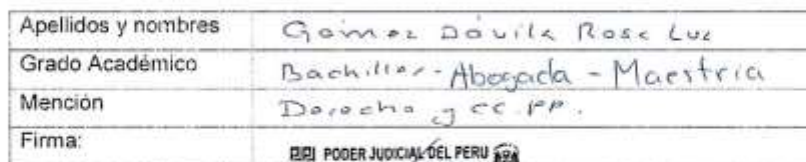 Apellidos y nombres Gómez Dávila Rosa Luz
Grado Académico Bachiller - Abogada - Maestria
Mención Derecho y CC.PP.
Firma:
PJ PODER JUDICIAL DEL PERU